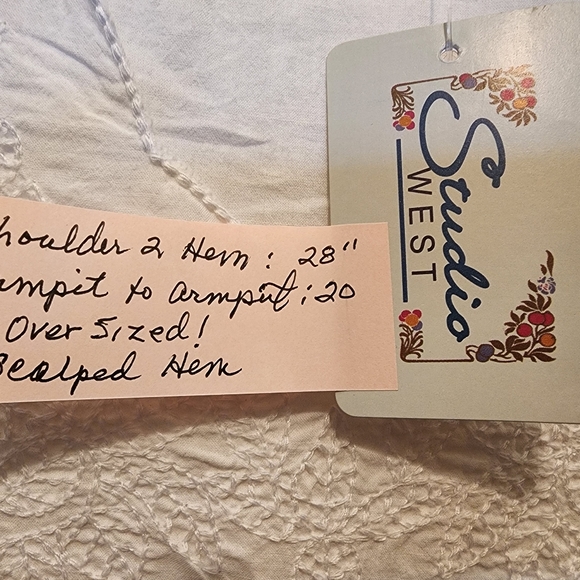 houlder 2 Hem: 28"
ampit to armpit: 20
Over Sized!
Scalped Hem
Studio
WEST